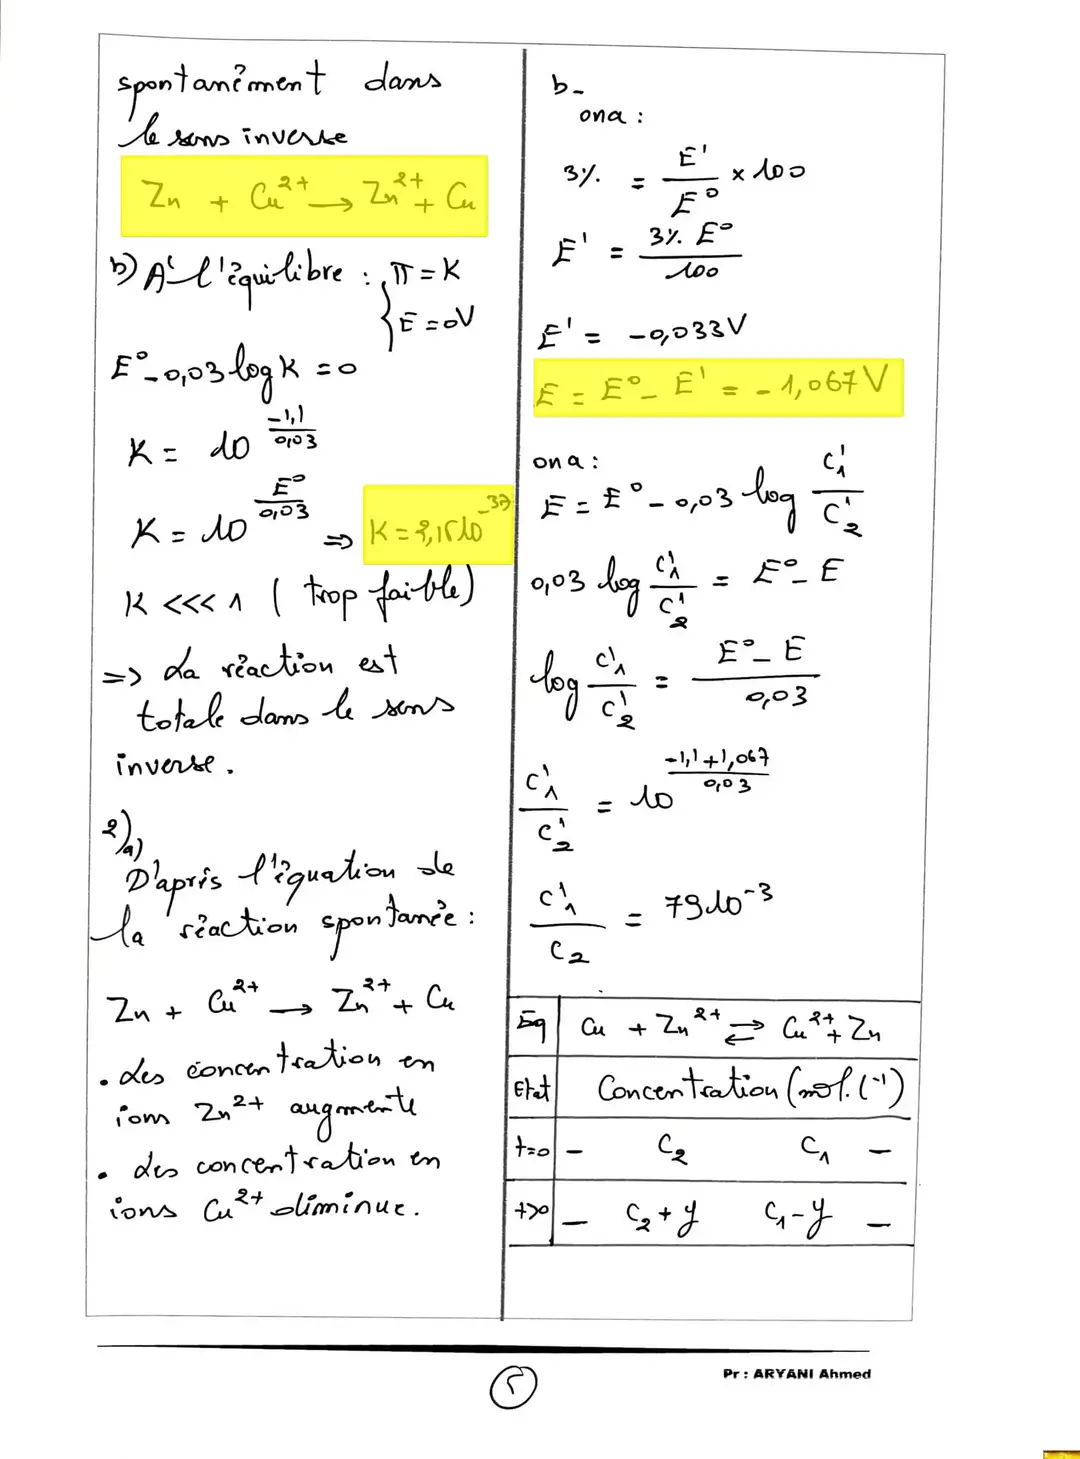 spontanément dans
le sens inverse
Zn + Cu²⁺ → Zn²⁺ + Cu
b) A l'équilibre : { π = K
E = 0V
E° - 0,03 log K = 0
K = 10^(-1,1/0,03)
K = 10^(E°/0,03) ⇒ K = 2,15 10⁻³⁷
K <<< 1 ( trop faible)
=> La réaction est
totale dans le sens
inverse.
2/a)
D'après l'équation de
la réaction spontanée :
Zn + Cu²⁺ → Zn²⁺ + Cu
• Les concentration en
ions Zn²⁺ augmente
• Les concentration en
ions Cu²⁺ diminue.
b-
on a :
3% = E'/E° × 100
E' = 3%. E°/100
E' = -0,033V
E = E° - E' = -1,067 V
on a :
E = E° - 0,03 log C'₁/C'₂
0,03 log C'₁/C'₂ = E° - E
log C'₁/C'₂ = E° - E/0,03
C'₁/C'₂ = 10^(-1,1+1,067/0,03)
C'₁/C₂ = 79 10⁻³
Eq Cu + Zn²⁺ ⇌ Cu²⁺ + Zn
Etat Concentration (mol.L⁻¹)
t=0 - C₂ C₁ -
t>0 - C₂+y C₁-y -
5
Pr : ARYANI Ahmed